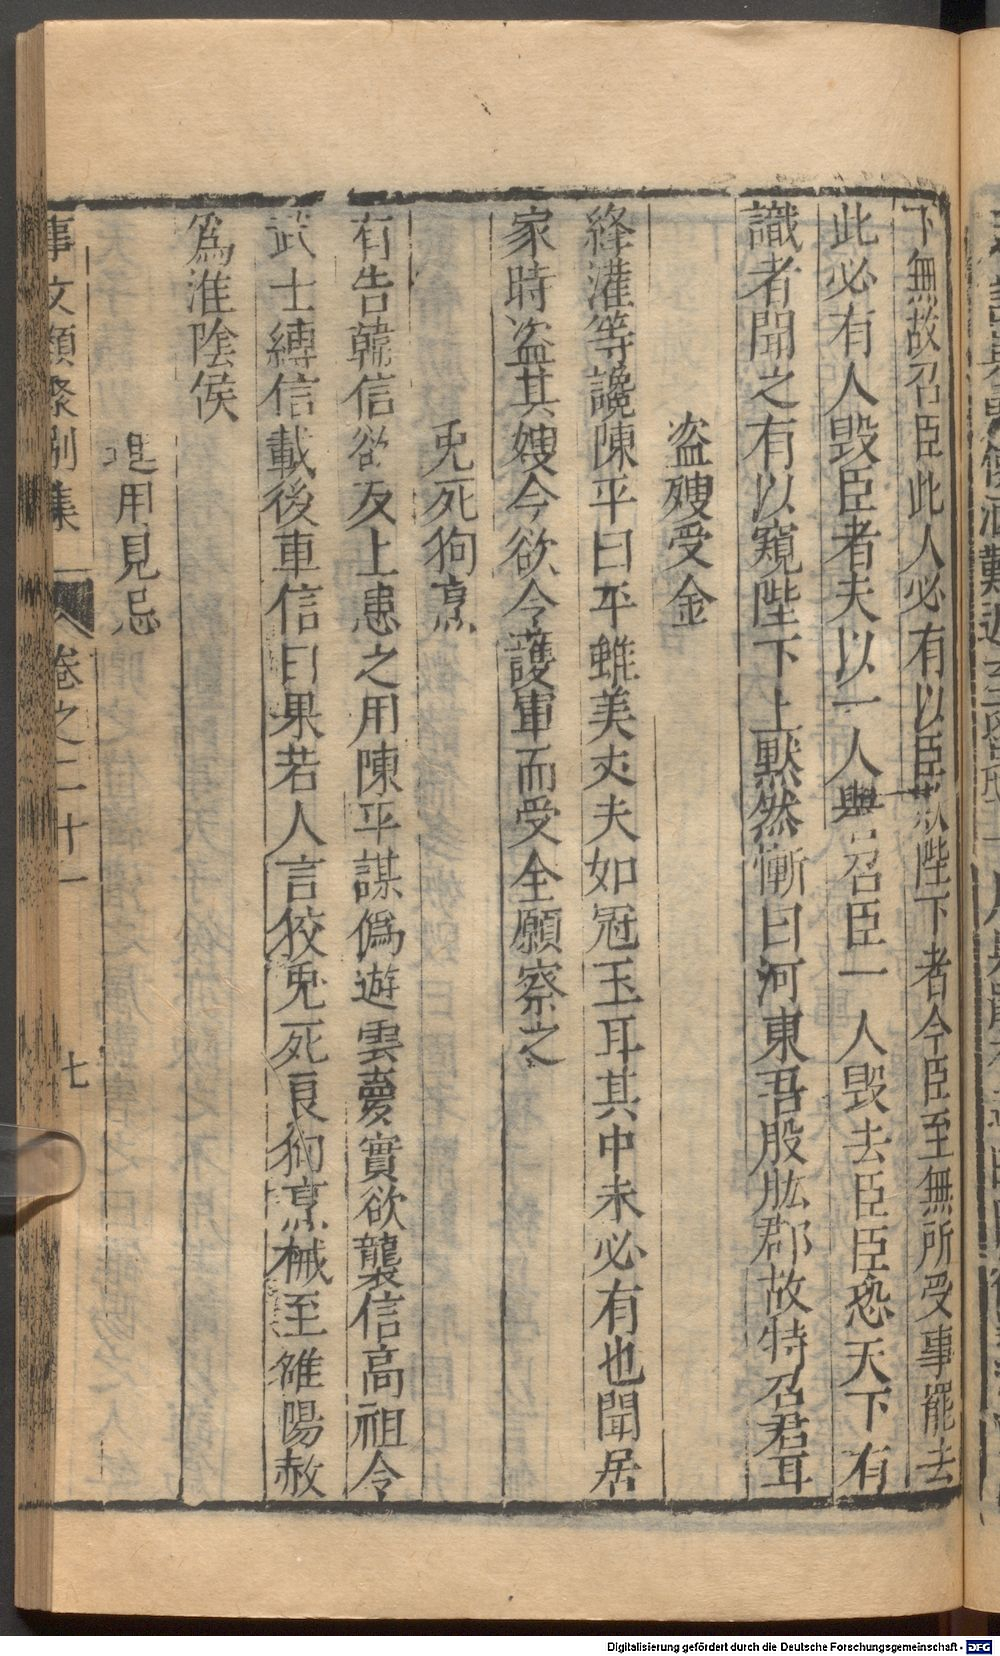 下無故召臣此人必有以臣欺陛下者今臣至無所受事罷去
此必有人毀臣者夫以一人譽召臣一人毀去臣臣恐天下有
識者聞之有以窺陛下上黙然慚曰河東吾股肱郡故特召君耳
盗嫂受金
絳灌等讒陳平曰平雖美丈夫如冠玉耳其中未必有也聞居
家時盗其嫂今欲令護軍而受金願察之
兎死狗烹
有告韓信欲反上患之用陳平謀偽遊雲夢實欲襲信高祖令
武士縛信載後車信曰果若人言狡兎死良狗烹械至雒陽赦
為淮陰侯
進用見忌
事文類聚別集 卷之二十一 七
Digitalisierung gefördert durch die Deutsche Forschungsgemeinschaft - DFG